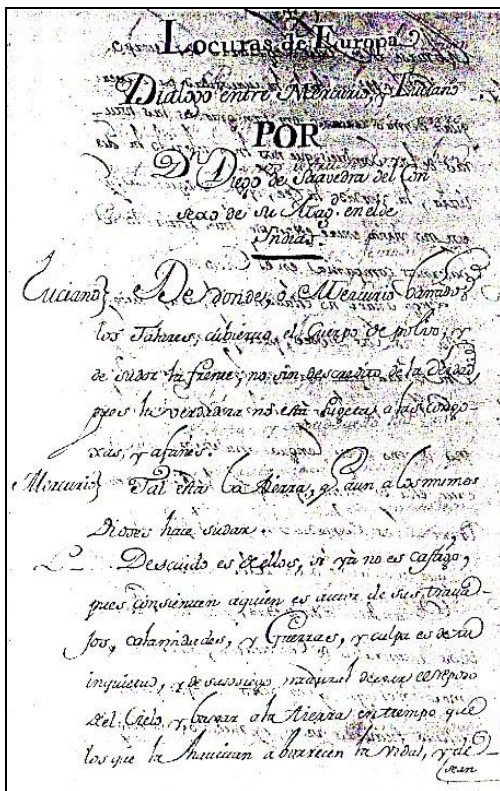 Locuras de Europa
Dialogo entre Mercurio, y Luciano
POR
Dn Diego de Saavedra del Con
sexo de su Mag. en el de
Indias
Luciano} De donde, ò Mercurio
los Talares, cubierto, el Cuerpo de polvo, y
de sudor la frente, no sin descredito de la Deidad,
pues la verdadera no está sugeta a las congo-
xas, y afanes.
Mercurio} Tal está la tierra, q. aun a los mismos
Dioses hace sudar.
L. Descuido es de ellos, si yà no es castigo,
pues consienten aquien es autor de sus trava-
jos, calamidades, y Guerras, y culpa es de tu
inquietud, y desasosiego natural dexar el reposo
del Cielo, y baxar a la tierra en tiempo que
los que la havitan aborrecen la vida, y de-
sean